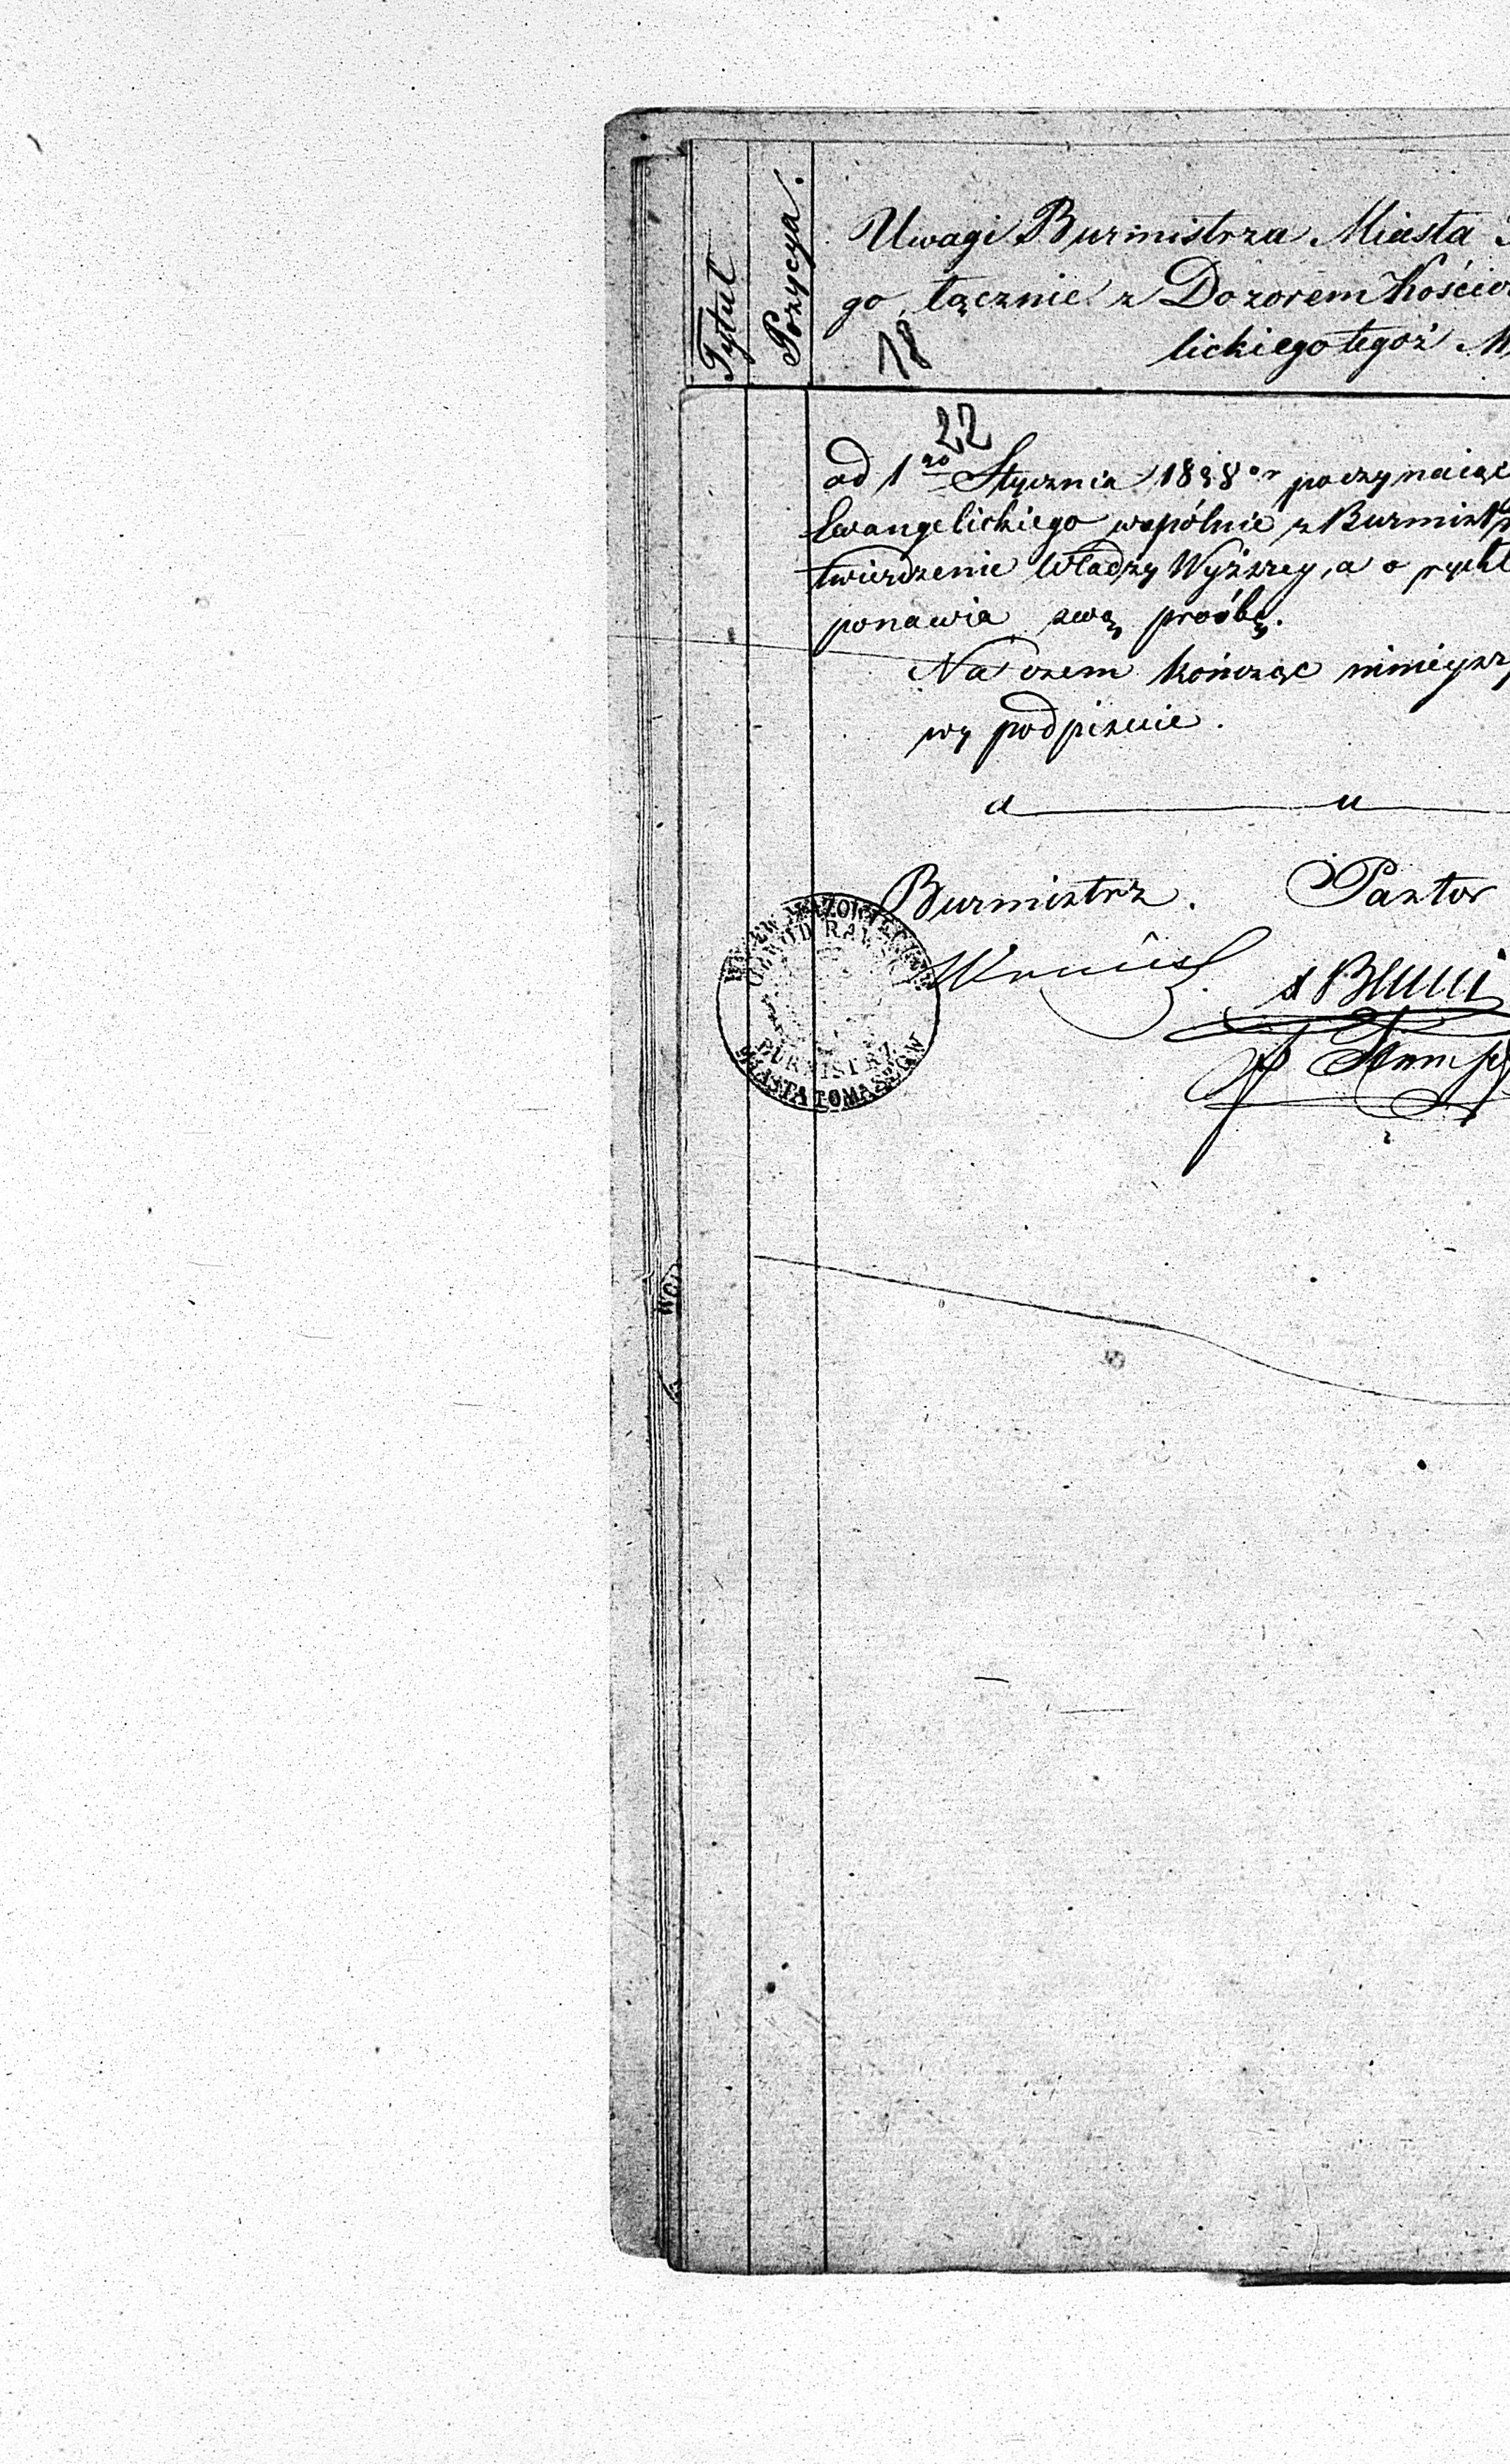 Tytuł
Pozycya.
Uwagi Burmistrza Miasta
go, łącznie z Dozorem Kościo
lickiego tegoż M
18
22
od 1go Stycznia 1838 or poczynaiąc
Ewangelickiego wspólnie z Burmist
twierdzenie Władzy Wyższey, a o rycht
ponawia swą proźbę.
Na czem kończąc ninieysz
wy podpisuie.
a u
Burmistrz. Pastor
OBWOD RAWSKI
BURMISTRZ
MIASTA TOMASZOW